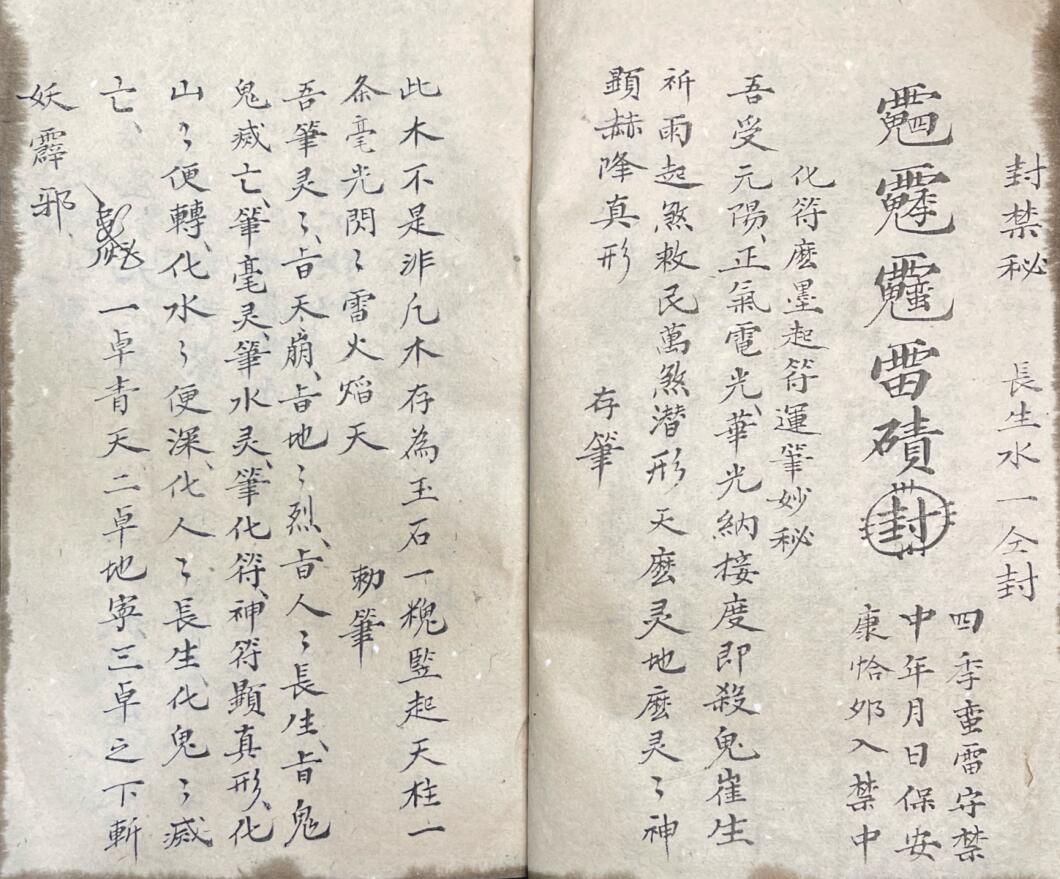 封禁秘　長生水一仝封
雷磧封
四季蛮雷守禁
中年月日保安
康恰邪入禁中
化符麼墨起符運筆妙秘
吾受元陽、正氣電光、華光納接度即殺鬼崔生
祈雨起煞救民萬煞潜形天麼灵地麼灵〻神
顕赫降真形　存筆
此木不是非凢木存為玉石一塊監起天柱一
条毫光閃〻雷火熖天　勅筆
吾筆灵〻、旨天〻崩、旨地〻烈、旨人〻長生、旨鬼
鬼烕亡、筆毫灵、筆水灵、筆化符、神符顕真形、化
山〻便轉、化水〻便深、化人〻長生、化鬼〻烕
亡、一卓青天二卓地寧三卓之下斬
妖霹邪